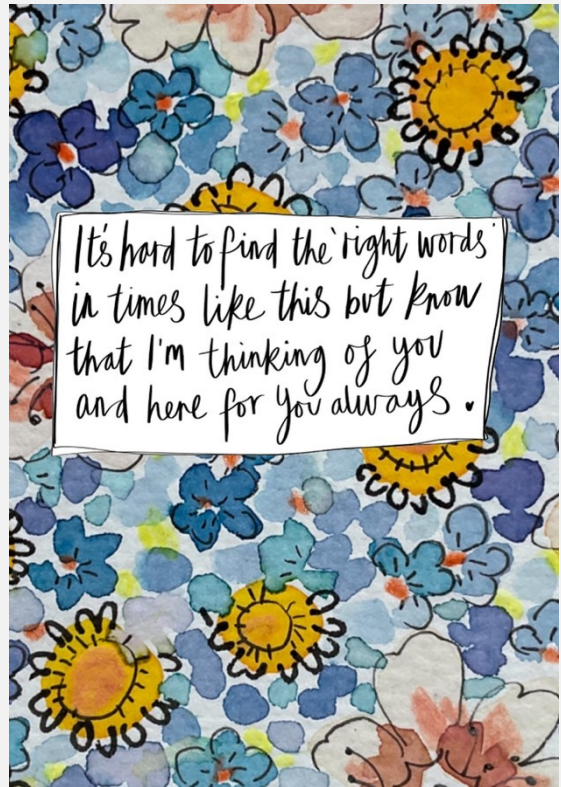 It's hard to find the 'right words'
in times like this but know
that I'm thinking of you
and here for you always.